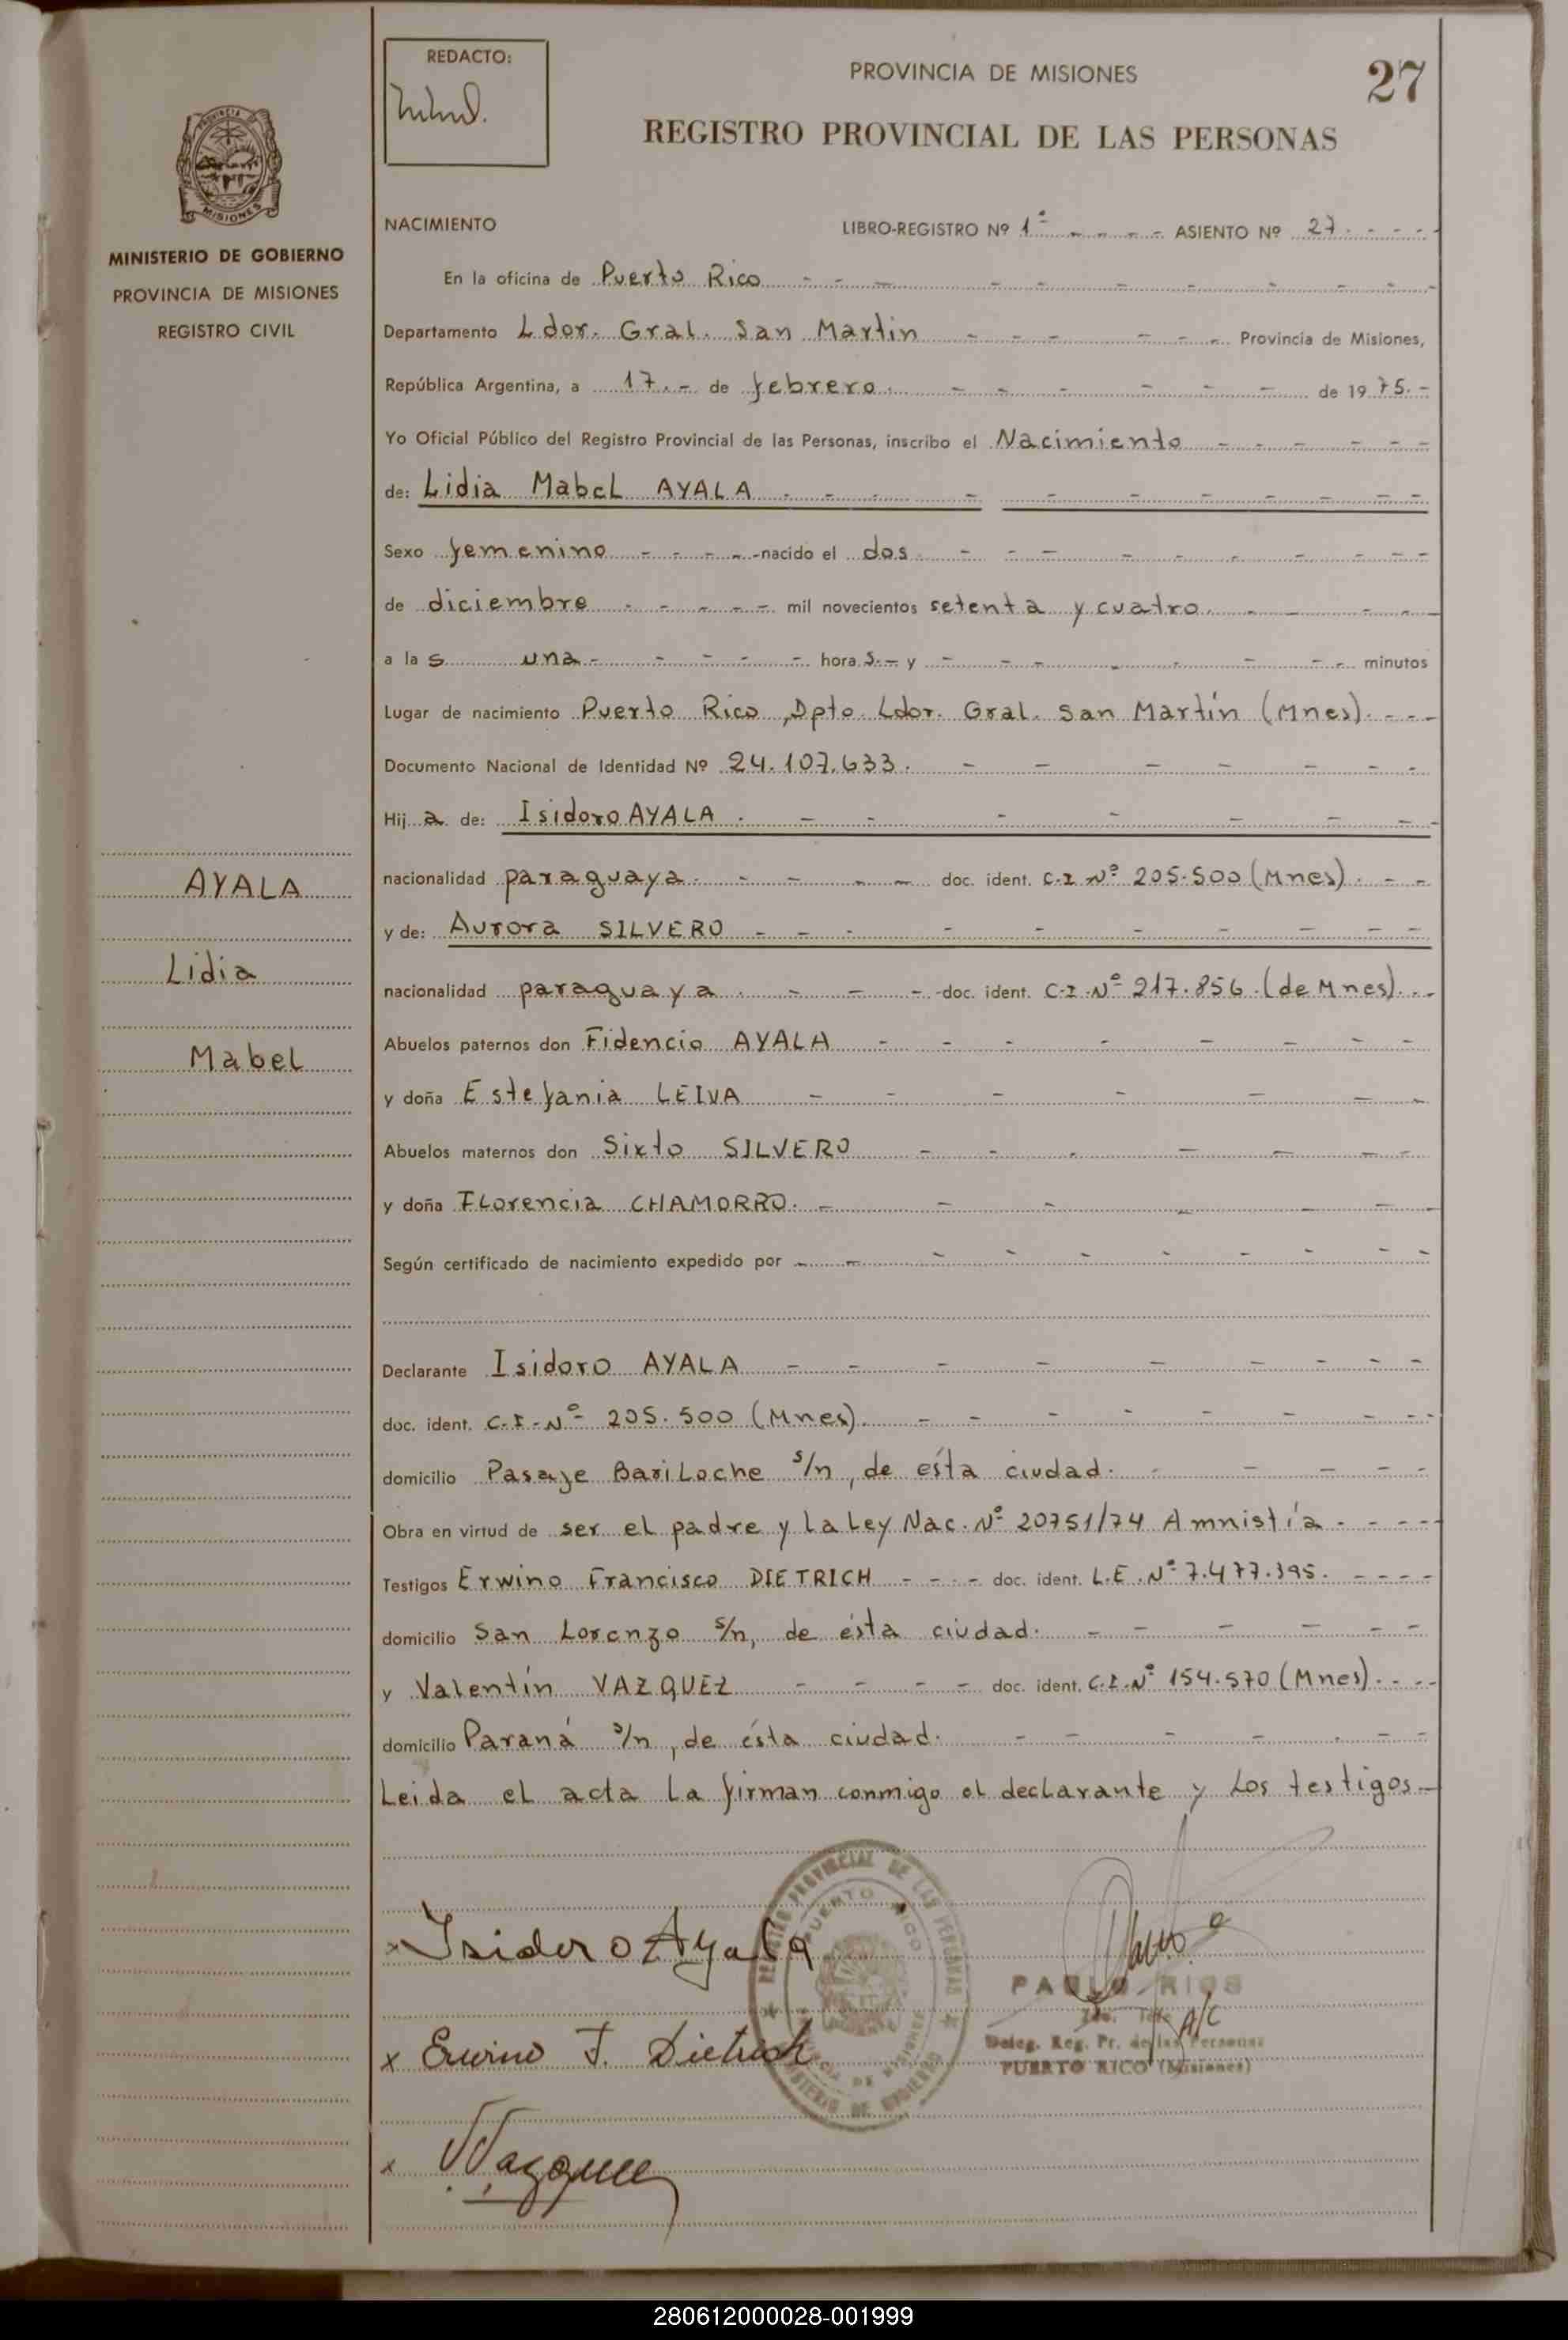 27
REDACTO:
PROVINCIA DE MISIONES
REGISTRO PROVINCIAL DE LAS PERSONAS
PROVINCIA
MISIONES
MINISTERIO DE GOBIERNO
PROVINCIA DE MISIONES
REGISTRO CIVIL
NACIMIENTO LIBRO-REGISTRO Nº 1º - - - - ASIENTO Nº 27. - - -
En la oficina de Puerto Rico
Departamento Ldor. Gral. San Martin - - - Provincia de Misiones,
República Argentina, a 17.- de febrero. - - - de 1975.-
Yo Oficial Público del Registro Provincial de las Personas, inscribo el Nacimiento
de: Lidia Mabel AYALA
Sexo femenino - - - - nacido el dos
de diciembre - - - - mil novecientos setenta y cuatro
a las una - - - - horas.- y - - - minutos
Lugar de nacimiento Puerto Rico, Dpto. Ldor. Gral. San Martín (Mnes).
Documento Nacional de Identidad Nº 24.107.633.
Hija de: Isidoro AYALA
nacionalidad paraguaya. - - - doc. ident. C.I Nº 205.500 (Mnes).
y de: Aurora SILVERO
nacionalidad paraguaya. - - - doc. ident. C.I.Nº 217.856.(de Mnes).
Abuelos paternos don Fidencio AYALA
y doña Estefania LEIVA
Abuelos maternos don Sixto SILVERO
y doña Florencia CHAMORRO.
Según certificado de nacimiento expedido por
Declarante Isidoro AYALA
doc. ident. C.I.Nº 205.500 (Mnes).
domicilio Pasaje Bariloche s/n, de ésta ciudad.
Obra en virtud de ser el padre y la Ley Nac. Nº 20751/74 Amnistía
Testigos Erwino Francisco DIETRICH - - - doc. ident. L.E. Nº 7.477.395.
domicilio San Lorenzo s/n, de ésta ciudad.
y Valentín VAZQUEZ - - - doc. ident. C.I.Nº 154.570 (Mnes).
domicilio Paraná s/n, de ésta ciudad.
Leida el acta la firman conmigo el declarante y los testigos.
AYALA
Lidia
Mabel
REGISTRO PROVINCIAL DE LAS PERSONAS
PUERTO RICO
MINISTERIO DE GOBIERNO
x Isidero Ayala
PABLO RIOS
A/C
Deleg. Reg. Pr. de las Personas
PUERTO RICO (Misiones)
x Erwino F. Dietrich
x V Vazquez
280612000028-001999